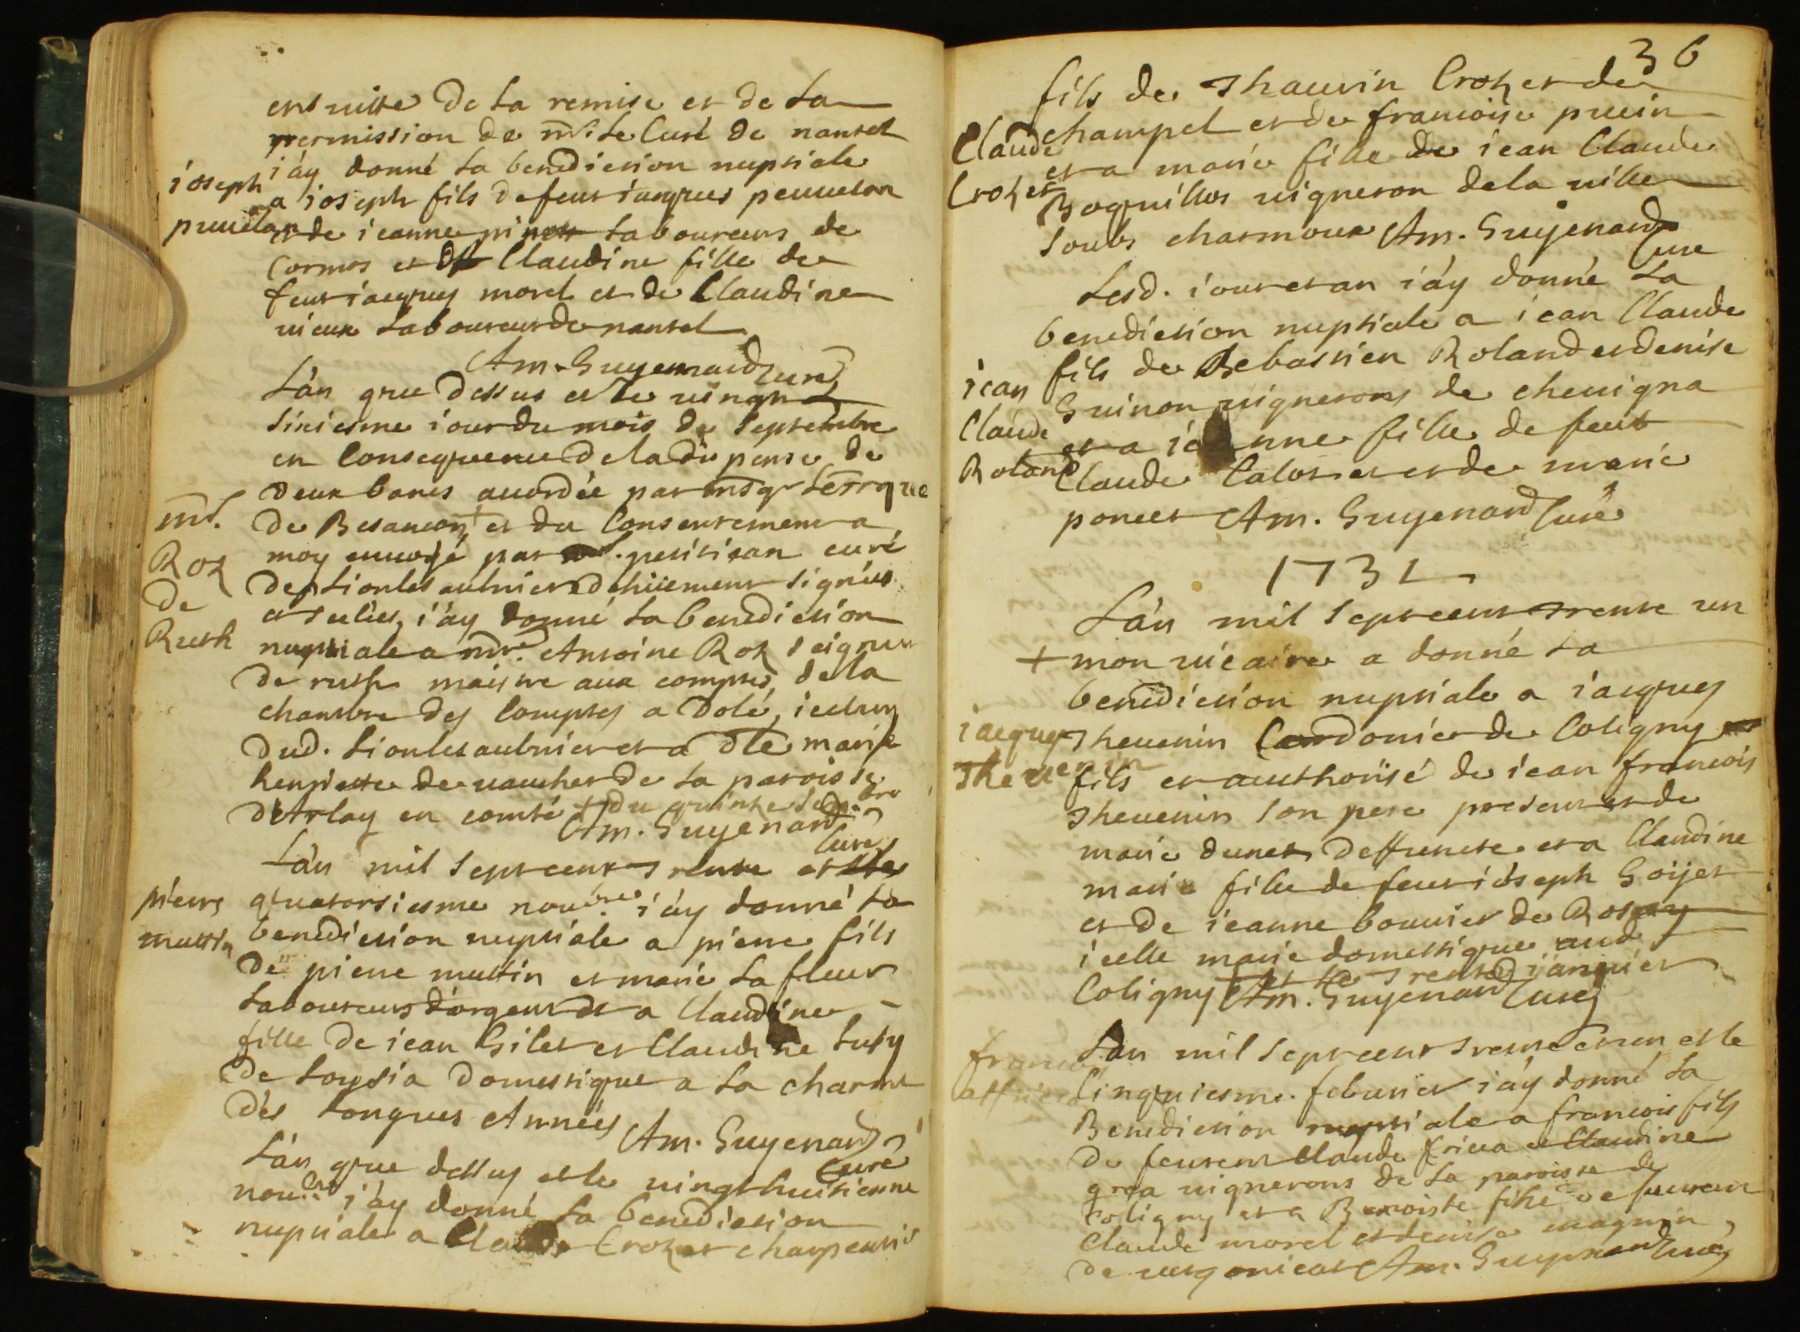 ensuitte de la remise et de la
permission de mr. le Curé de nantel
i'áy donné la benediction nuptiale
ioseph
a ioseph fils de feut iacques peuuelan
puuelan
et de ieanne pinon laboureurs de
Cormos et Claudine fille de
feut iacques morel et de Claudine
uieux laboureur de nantel
Am. Guyenard Curé
L'án que dessus et le uingt
siziesme iour du mois de septembre
en Consequence de la dispense de
deux bancs accordée par msgr
de Besancon + et du Consentement a
mr.
Roz
de
Ruth
moy enuoyé par mr. petitian curé
de lionslesaulnier dehüement signées
et seelées, i'áy donné la benediction
nuptiale a mre. Antoine Roz seigneur
de ruth maistre aux comptes de la
chambre des Comptes a Dole, iceluy
dud. lionlesaulnier et a dlle marie
henriette de uaucher de la paroisse
d'Arlay en comté + du quinze septbre
Am. Guyenard Curé
L'án mil sept cent trente et le
pierre
muttin
quatorsiesme noubre. i'áy donné la
benediction nuptiale a pierre fils
de pierre muttin et marie la fleur
laboureurs d'orgent et a Claudine
fille de iean Gilet et Claudine
de loysia domestique a la charme
dès longues Années
Am. Guyenard Curé
L'án que dessus et le uingt huitiesme
noubre i'áy donné la benediction
nuptiale a Claude Crozet charpentie
36
fils de Thauuin Crozet de
Claude
Crozet
champel et de francoise puuin
et a marie fille de iean Claude
Boquillos uigneron de la uille
soubs charmoux Am. Guyenard Curé
Lesd. iour et an i'áy donné la
benediction nuptiale a iean Claude
iean
Claude
Roland
fils de Sebastien Roland et denise
Guinon uignerons de cheuigna
et a ieanne fille de feut
Claude Calot et et de marie
poncet Am. Guyenard Curé
1731
L'án mil sept cent trente un
+ mon uicaire a donné la
benediction nuptiale a iacques
iacques
Theuenin
Theuenin Cordonier de Coligny
fils et authorisé de iean francois
Theuenin son pere present et de
marie dunet deffuncte et a Claudine
marie fille de feut ioseph Goijet
et de ieanne bouuier de Rosay
icelle marie domestique aud.
Coligny + et le trente ianuier
Am. Guyenard Curé
L'án mil sept cent trente et un et le
francois
Cinquiesme. feburier i'áy donné la
Benediction nuptiale a francois fils
de feurent Claude et Claudine
grea uignerons de la paroisse de
Coligny et a Benoiste fille de feurent
Claude morel et denise magnin,
de uergonicat Am. Guyenard Curé